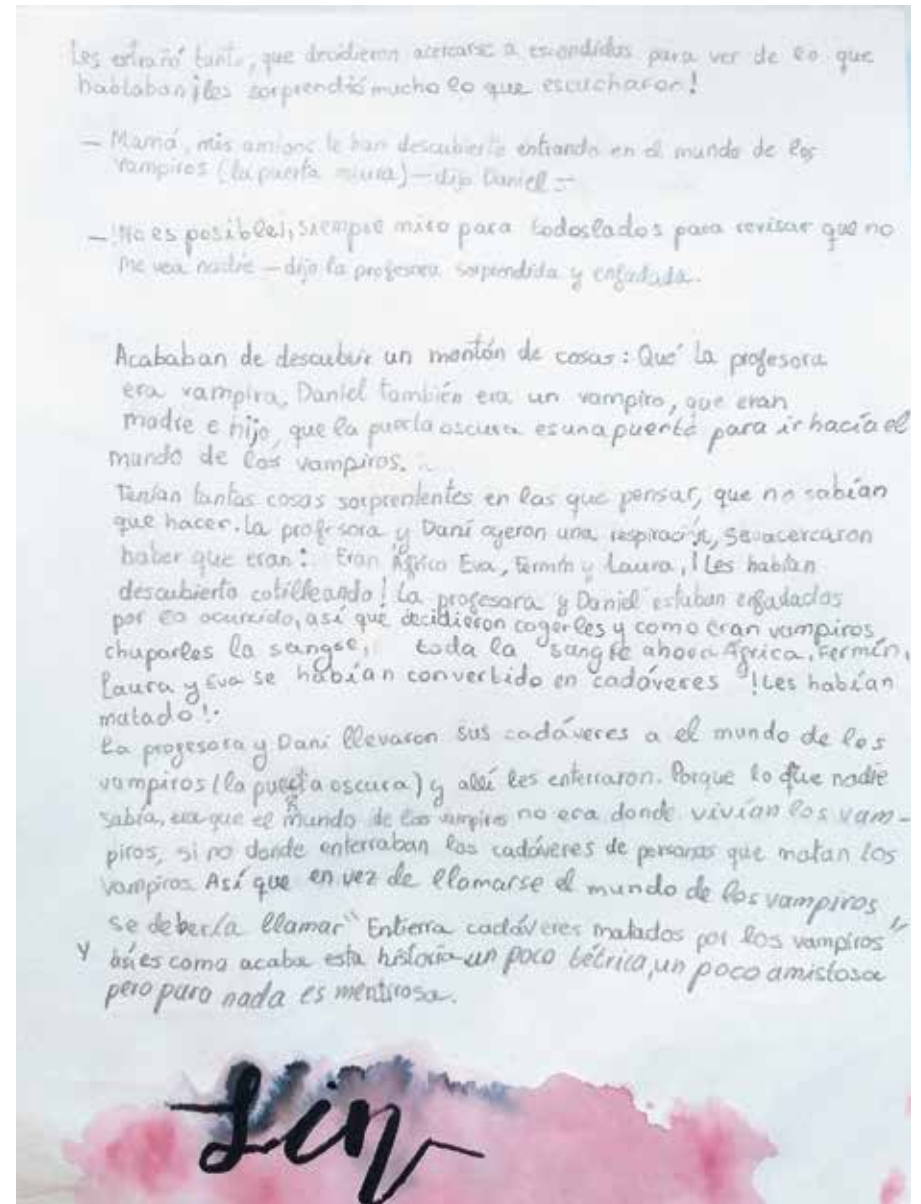 Les extrañó tanto, que decidieron acercarse a escondidas para ver de lo que
hablaban ¡les sorprendió mucho lo que escucharon!
– Mamá, mis amigos te han descubierto entrando en el mundo de los
vampiros (la puerta oscura) – dijo Daniel –
– ¡No es posible!, siempre miro para todoslados para revisar que no
me vea nadie – dijo la profesora sorprendida y enfadada.
Acababan de descubrir un montón de cosas: Qué la profesora
era vampira, Daniel también era un vampiro, que eran
madre e hijo, que la puerta oscura es una puerta para ir hacía el
mundo de los vampiros.
Tenían tantas cosas sorprendentes en las que pensar, que no sabían
que hacer. La profesora y Dani oyeron una respiración, se acercaron
haber que eran: Eran África Eva, Fermín y Laura, ¡Les habían
descubierto cotilleando! La profesora y Daniel estaban enfadados
por lo ocurrido, así que decidieron cogerles y como eran vampiros
chuparles la sangre, toda la sangre ahora África, Fermín,
Laura y Eva se habían convertido en cadáveres ¡Les habían
matado!.
La profesora y Dani llevaron sus cadáveres a el mundo de los
vampiros (la puerta oscura) y allí les enterraron. Porque lo que nadie
sabía, era que el mundo de los vampiros no era donde vivían los vam-
piros, si no donde enterraban los cadáveres de personas que matan los
vampiros. Así que en vez de llamarse el mundo de los vampiros
se debería llamar "Entierra cadáveres matados por los vampiros"
y así es como acaba esta historia un poco tétrica, un poco amistosa
pero para nada es mentirosa.
Fin